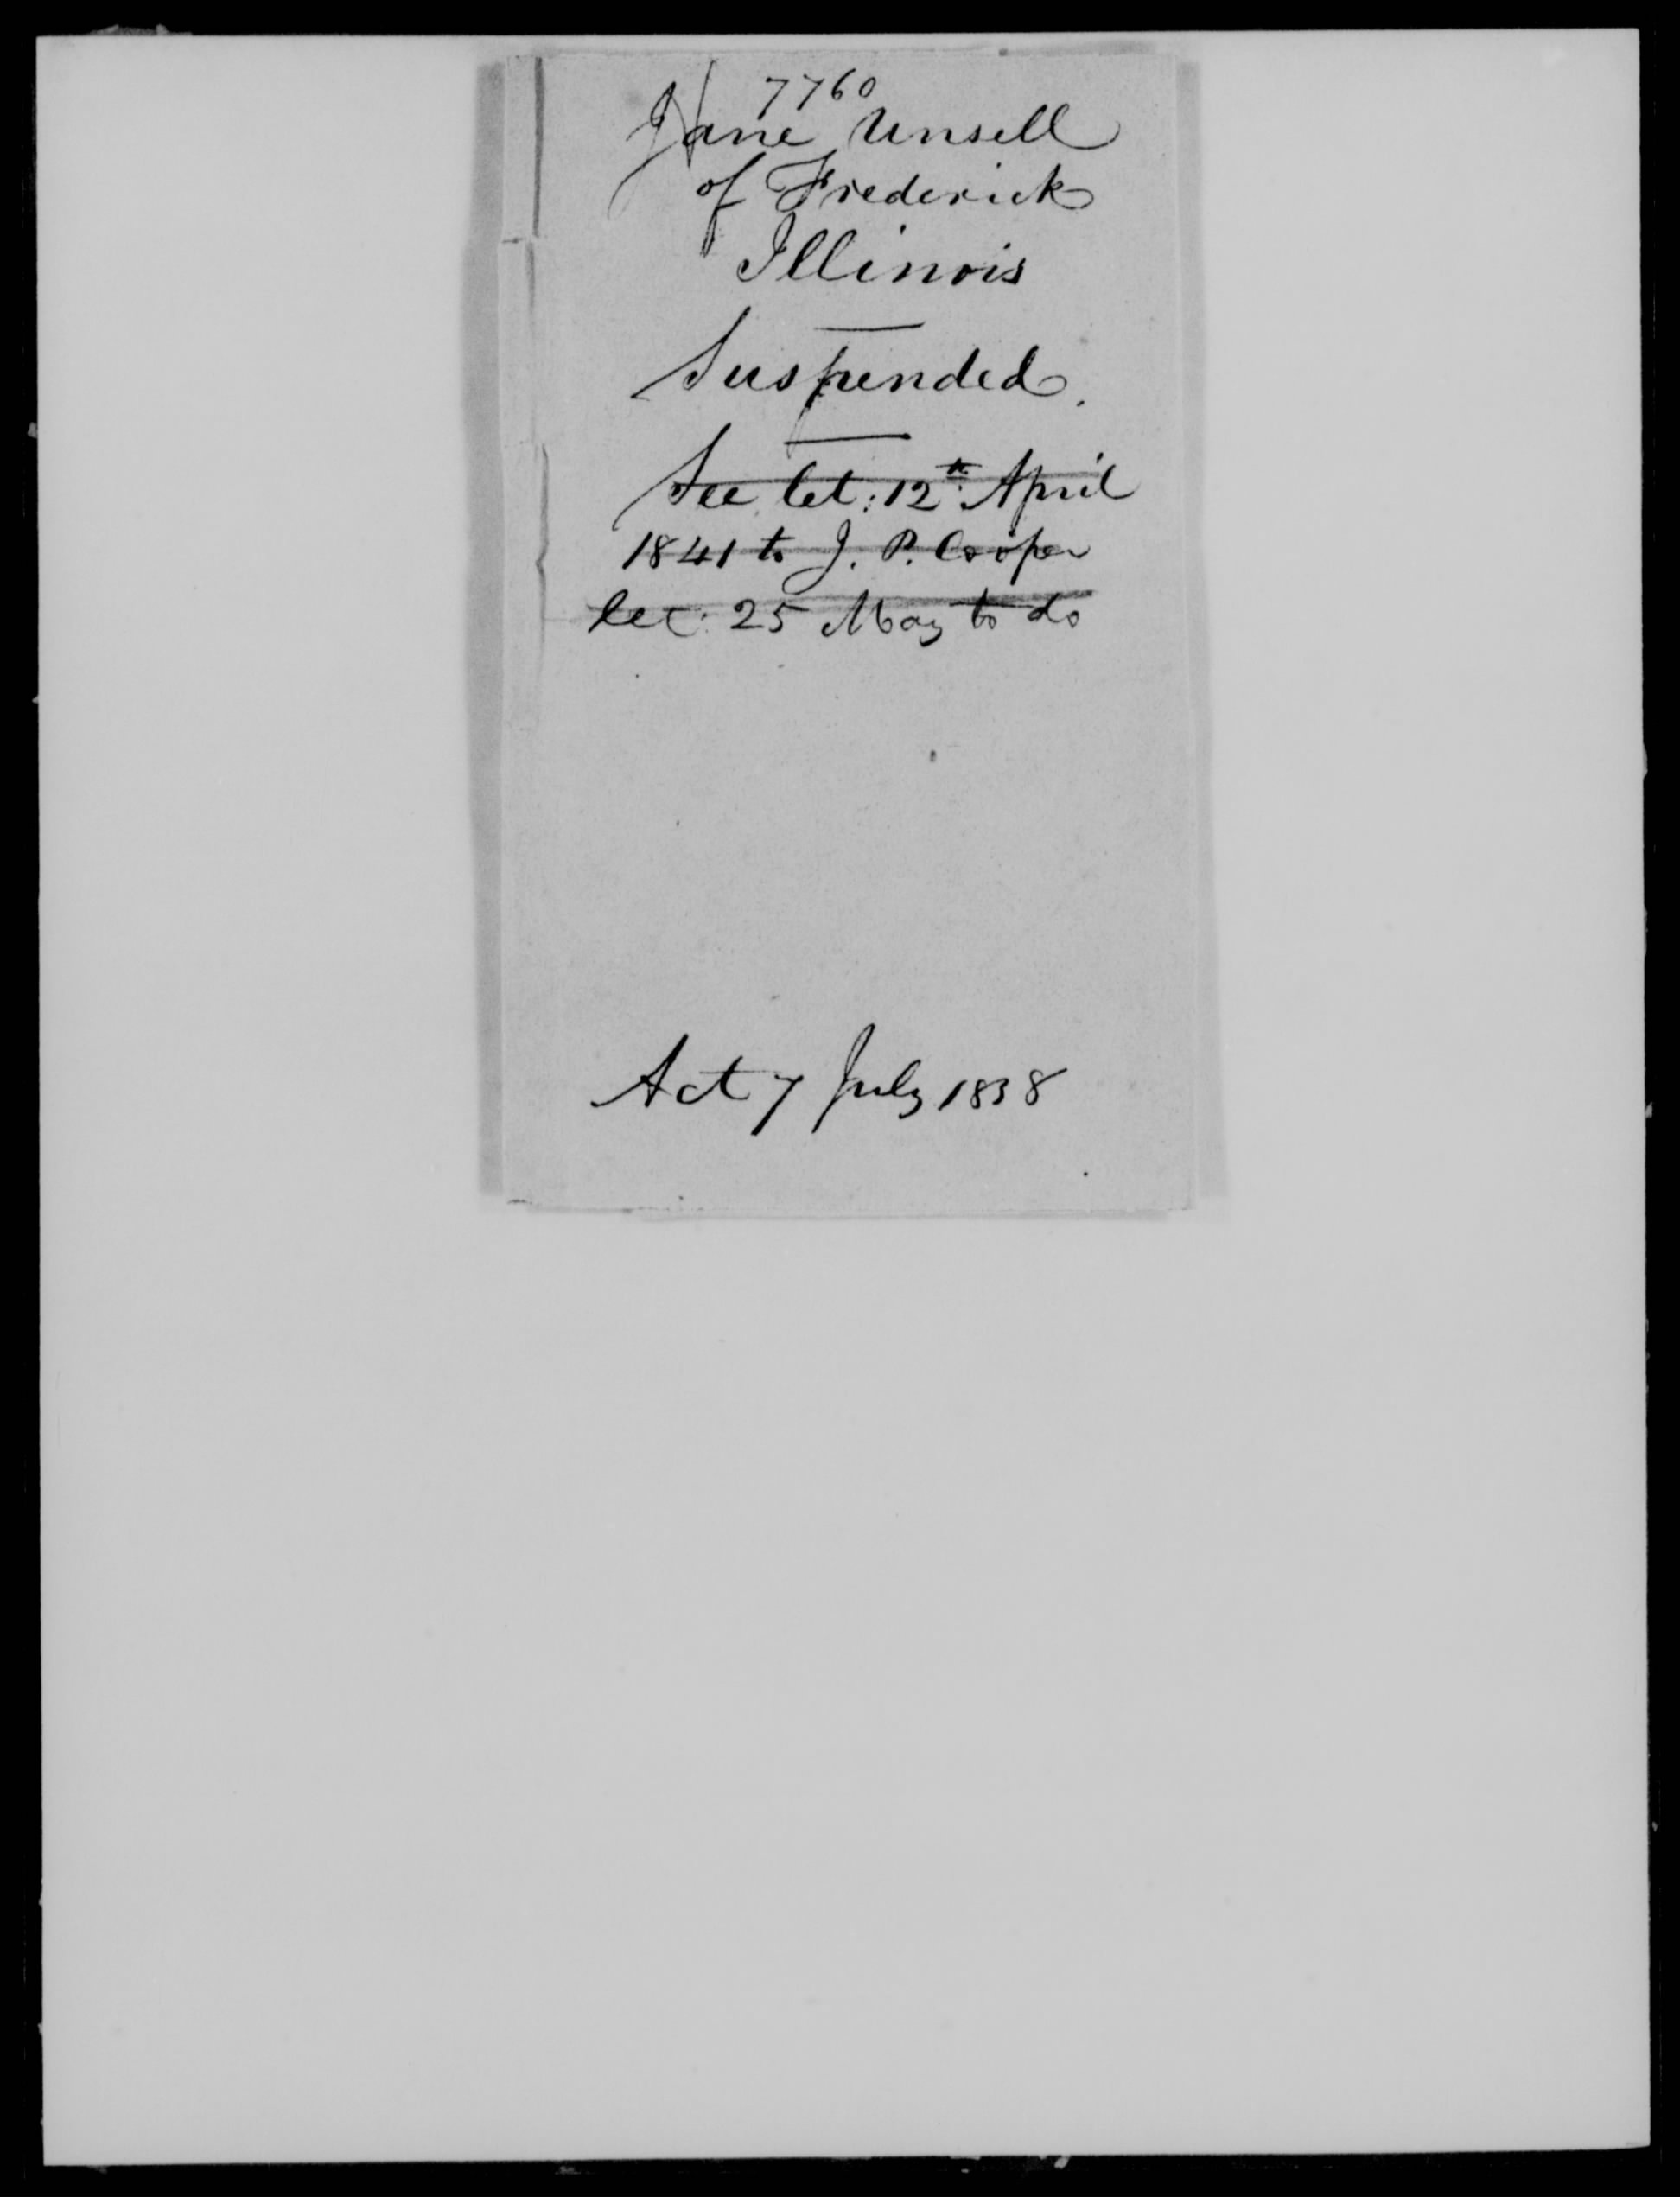 7760
Jane Unsell
of Frederick
Illinois
Suspended.
See let: 12th April
1841 to J. P. Cooper
let: 25 May to do
Act 7 July 1838